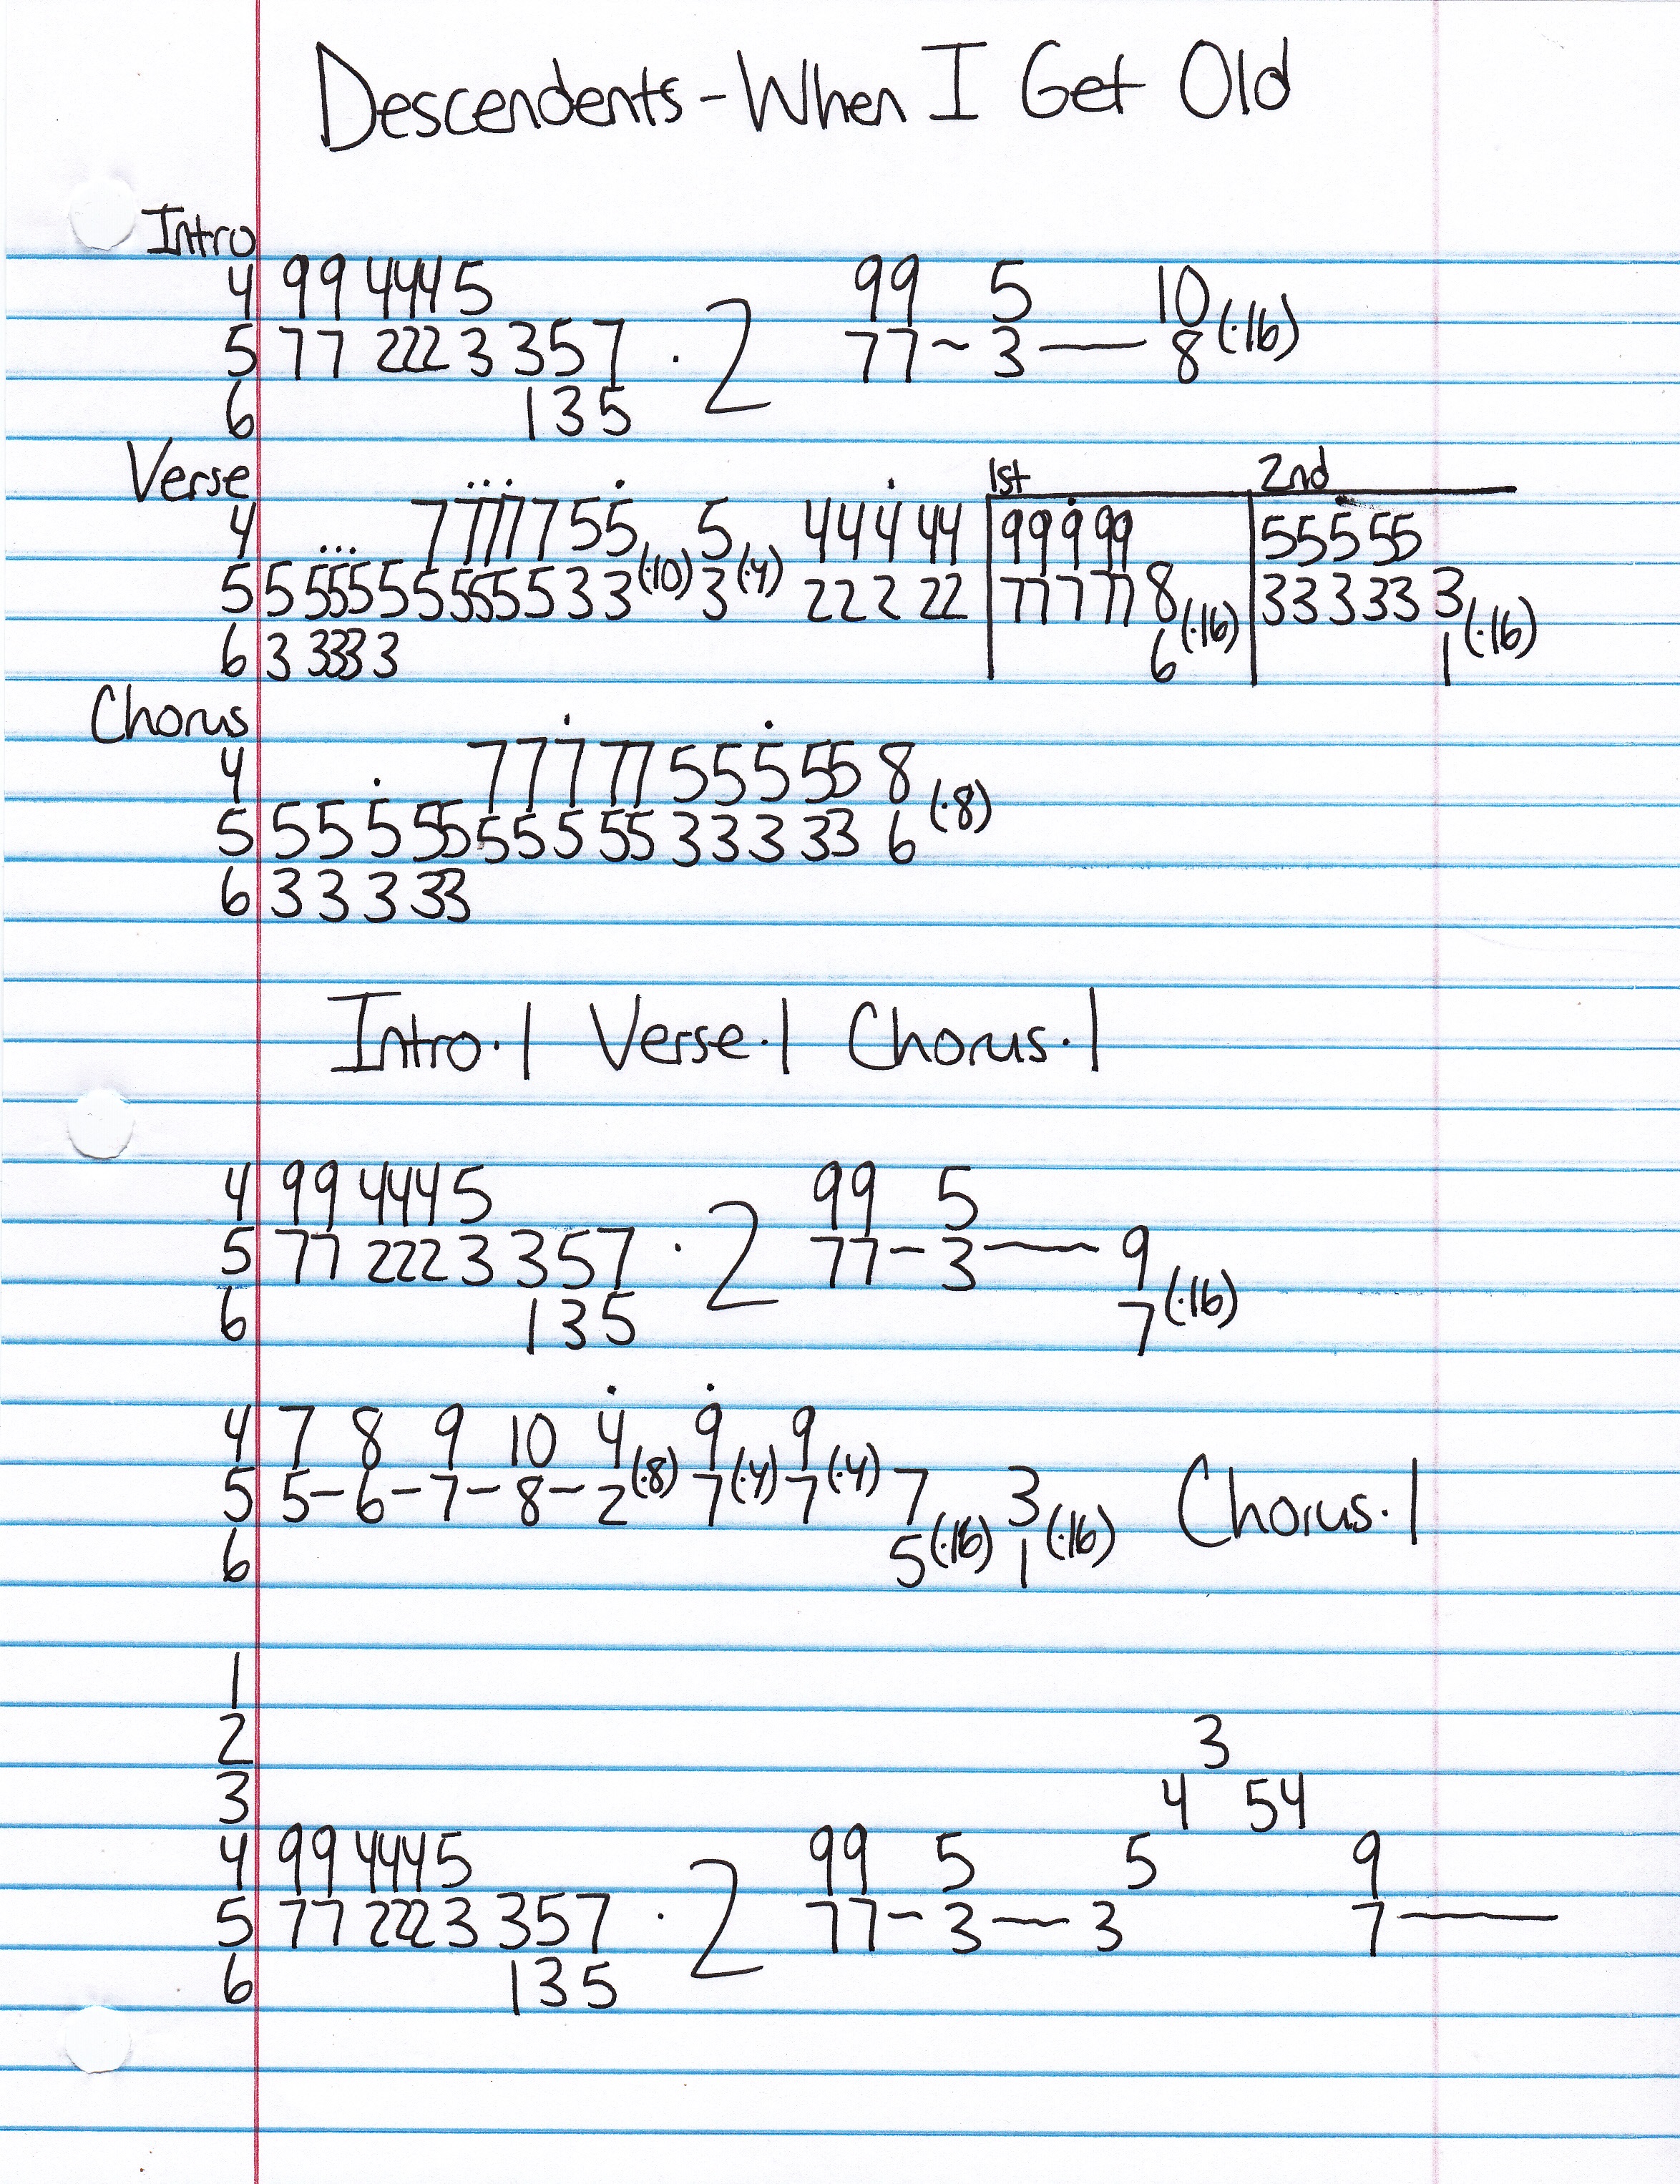 Descendents - When I Get Old
Intro
4 99 444 5 99 5 10
5 77 222 3 357 · 2 77 ~ 3 — 8 (·16)
6 135
Verse 1st 2nd
4 7 777 7 55 5 44 4 44 99 9 99 55 5 55
5 5 555 5 5 555 5 33 (·10) 3 (·4) 22 2 22 77 7 77 8 (·16) 33 3 33 3 (·16)
6 3 333 3 6 1
Chorus
4 77 7 77 55 5 55 8
5 55 5 55 55 5 55 33 3 33 6 (·8)
6 33 3 33
Intro·1 Verse·1 Chorus·1
4 99 444 5 99 5
5 77 222 3 357 · 2 77 – 3 — 9
6 135 7 (·16)
4 7 8 9 10 4 9 9
5 5–6–7–8–2 (·8) 7 (·4) 7 (·4) 7 3 Chorus·1
6 5 (·16) 1 (·16)
1
2 3
3 4 54
4 99 444 5 99 5 5 9
5 77 222 3 357 · 2 77 ~ 3 — 3 7 —
6 135